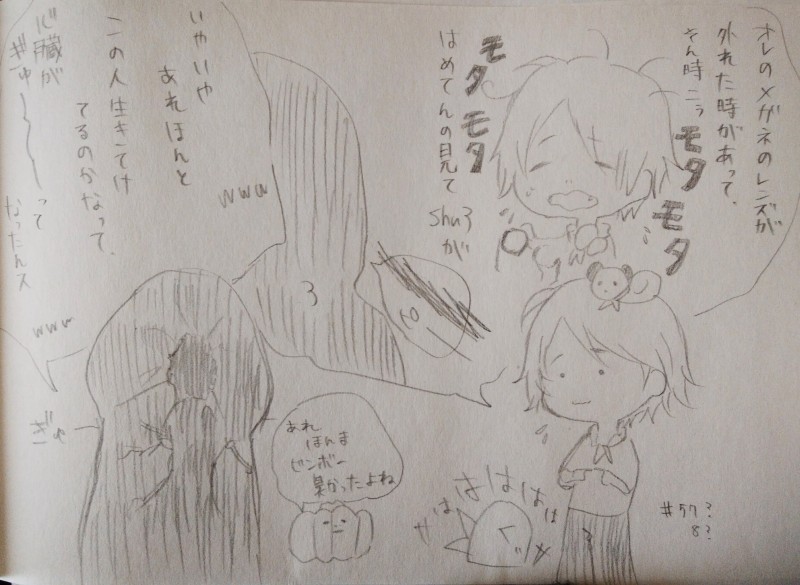 オレのメガネのレンズが
外れた時があって、
そん時こう
モタモタ
モタモタ
はめてんの見て
shu3が
3
いやいや
あれほんと
この人生きてけ
てるのかなって、
www
心臓が
ぎゅーーーって
なったんス
www
ぎゅ
あれ
ほんま
ビンボー
臭かったよね
はははは
#57?
8?